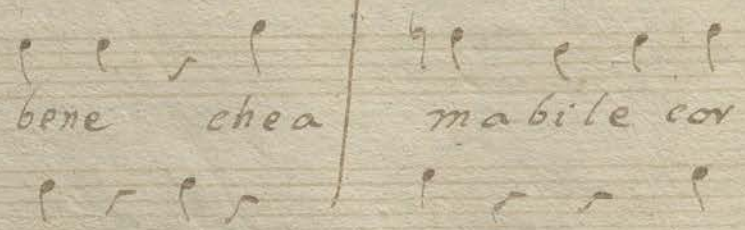 bene chea mabile cor